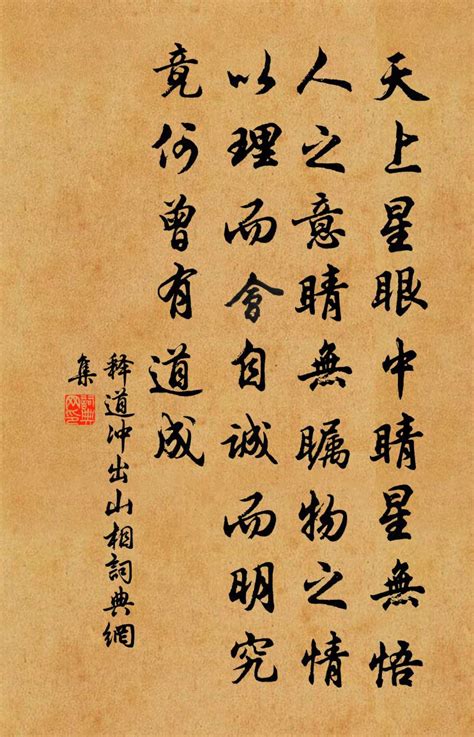 天上星眼中睛星無悟
人之意睛無瞩物之情
以理而會自誠而明究
竟何曾有道成
释道冲出山相詞典網
集